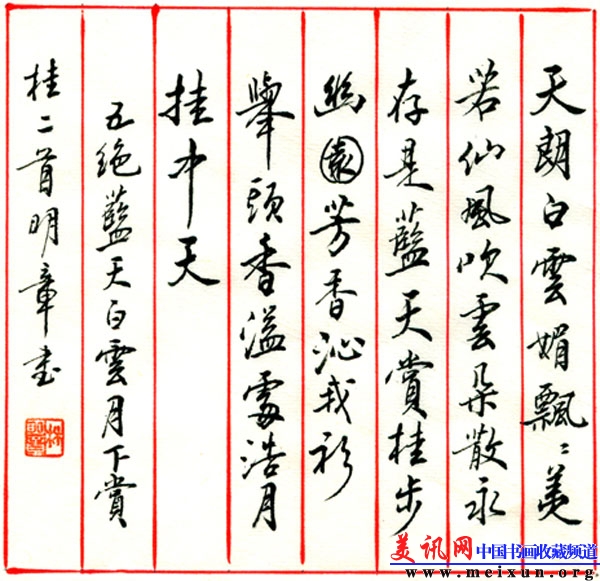 天朗白雲媚飄〻美
若仙風吹雲朵散永
存是藍天賞桂步
幽園芳香沁我衫
舉頭香溢處浩月
挂中天
五绝藍天白雲月下賞
桂二首明章书
美讯网 中国书画收藏频道
www.meixun.org